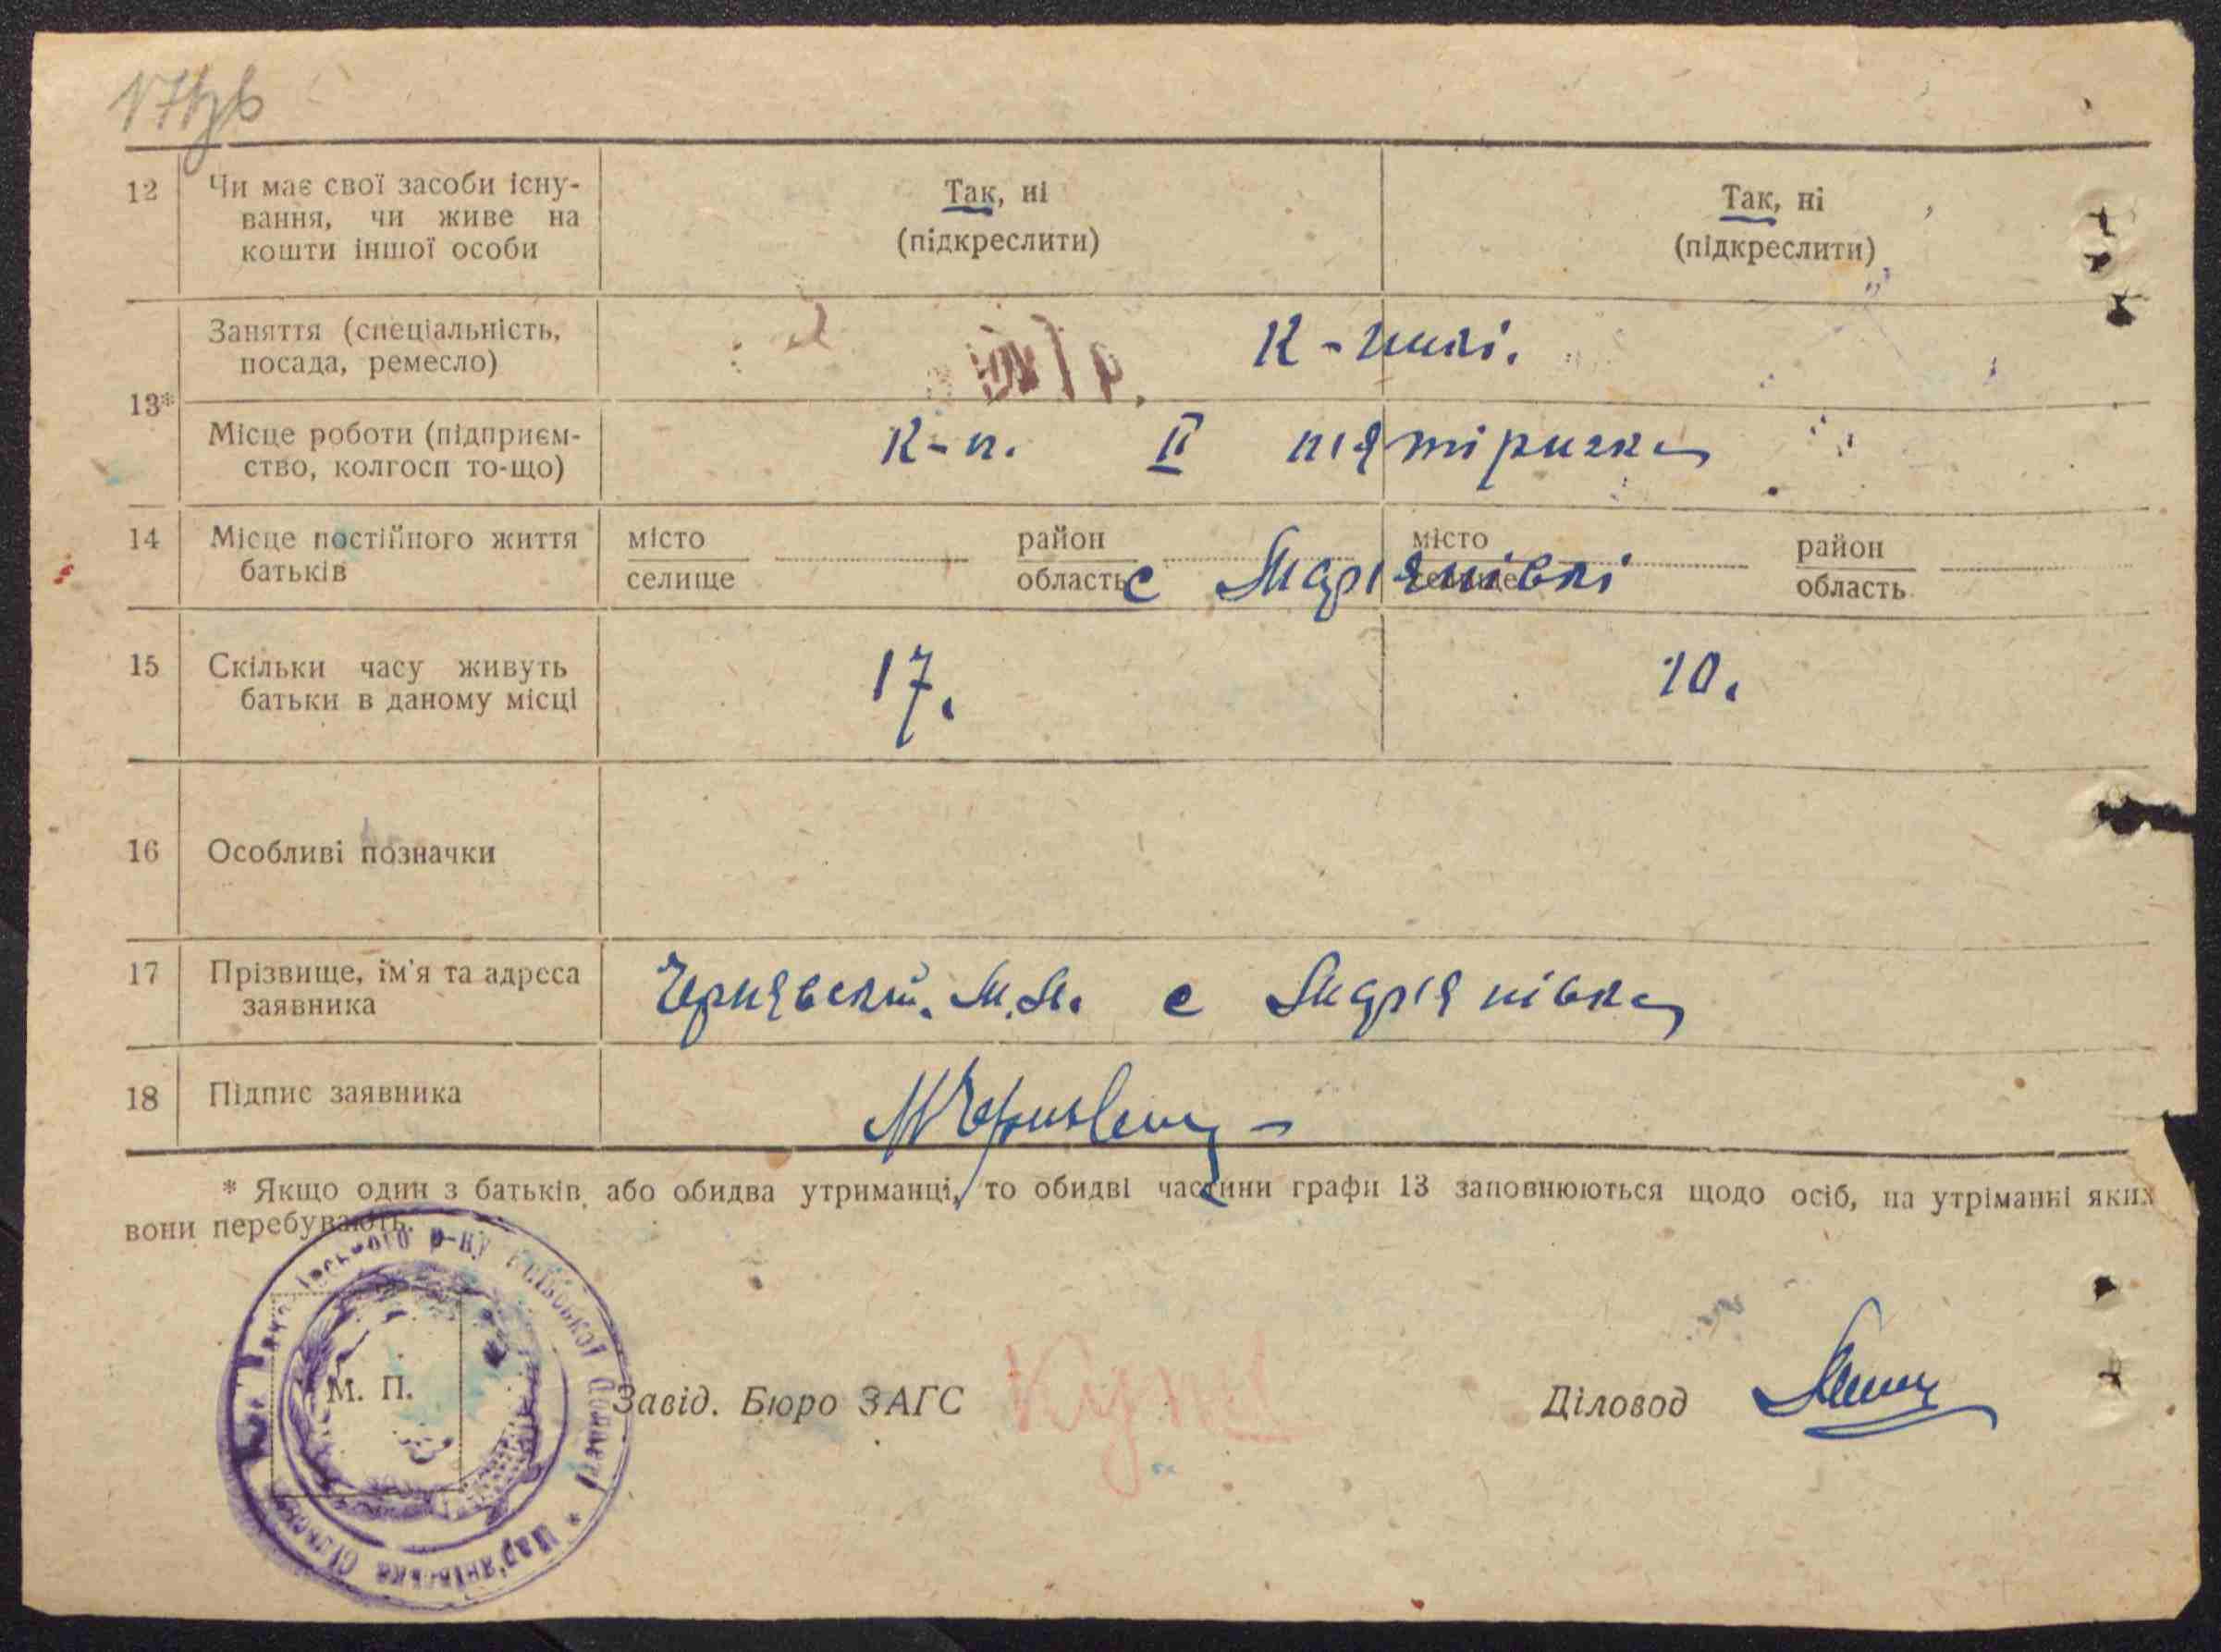 12 Чи має свої засоби існу-
вання, чи живе на
кошти іншої особи
Так, ні
(підкреслити)
Так, ні
(підкреслити)
13*
Заняття (спеціальність,
посада, ремесло)
к-ники.
Місце роботи (підприєм-
ство, колгосп то-що)
К-п. II пятірична
14 Місце постійного життя
батьків
місто
селище
район
область
місто
селище
район
область
с Мар'янівкі
15 Скільки часу живуть
батьки в даному місці
17.
10.
16 Особливі позначки
17 Прізвище, їм'я та адреса
заявника
Чернявский. М.М. с Мар'янівка
18 Підпис заявника
* Якщо один з батьків або обидва утриманці, то обидві частини графи 13 заповнюються щодо осіб, на утріманні яких
вони перебувають.
р-ну Київської Області * Мар'янівська сільська
М. П.
Завід. Бюро ЗАГС
Діловод